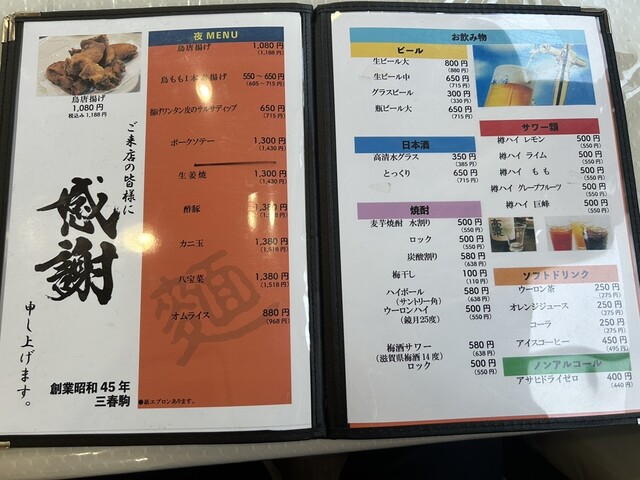 鳥唐揚げ
1,080円
税込み1,188円
ご来店の皆様に
感謝
申し上げます。
創業昭和45年
三春駒
夜MENU
鳥唐揚げ 1,080円
(1,188円)
鳥もも1本唐揚げ 550〜650円
(605〜715円)
揚げワンタン皮のサルサディップ 650円
(715円)
ポークソテー 1,300円
(1,430円)
生姜焼 1,300円
(1,430円)
酢豚 1,380円
(1,518円)
カニ玉 1,380円
(1,518円)
八宝菜 1,380円
(1,518円)
オムライス 880円
(968円)
麺
●紙エプロンあります。
お飲み物
ビール
生ビール大 800円
(880円)
生ビール中 650円
(715円)
グラスビール 300円
(330円)
瓶ビール大 650円
(715円)
日本酒
高清水グラス 350円
(385円)
とっくり 650円
(715円)
焼酎
麦芋焼酎 水割り 500円
(550円)
ロック 500円
(550円)
炭酸割り 580円
(638円)
梅干し 100円
(110円)
ハイボール 580円
(サントリー角) (638円)
ウーロンハイ 500円
(鏡月25度) (550円)
梅酒サワー 580円
(滋賀県梅酒14度) (638円)
ロック 500円
(550円)
サワー類
樽ハイ レモン 500円
(550円)
樽ハイ ライム 500円
(550円)
樽ハイ もも 500円
(550円)
樽ハイ グレープフルーツ 500円
(550円)
樽ハイ 巨峰 500円
(550円)
ソフトドリンク
ウーロン茶 250円
(275円)
オレンジジュース 250円
(275円)
コーラ 250円
(275円)
アイスコーヒー 450円
(495円)
ノンアルコール
アサヒドライゼロ 400円
(440円)